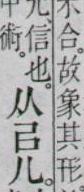 不合。故象其形
允、信也。从㠯儿。
術。